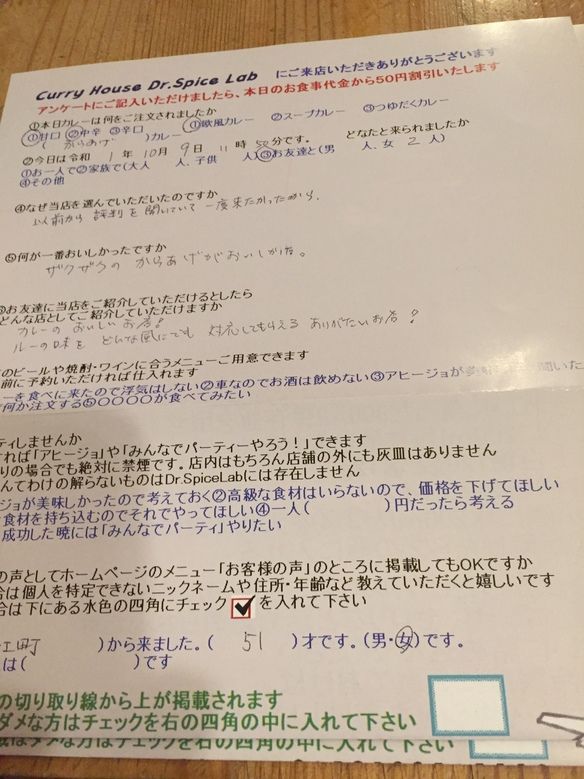 Curry House Dr.Spice Lab にご来店いただきありがとうございます
アンケートにご記入いただけましたら、本日のお食事代金から50円割引いたします
①本日カレーは何をご注文されましたか
①甘口 ②中辛 ③辛口 ①欧風カレー ②スープカレー ③つゆだくカレー
( からあげ )カレー
②今日は令和 1年 10月 9日 11時 50分です。 どなたと来られましたか
①お一人で②家族で(大人 人、子供 人)③お友達と(男 人、女 2人)
④その他
④なぜ当店を選んでいただいたのですか
以前から 評判を聞いていて 一度来たかったから。
⑤何が一番おいしかったですか
ザクザクの からあげがおいしかった。
お友達に当店をご紹介していただけるとしたら
どんな店としてご紹介していただけますか
カレーの おいしい お店!
ルーの味を どんな風にでも 対応してもらえる ありがたいお店!
のビールや焼酎・ワインに合うメニューご用意できます
前に予約いただければ仕入れます
ーを食べに来たので浮気はしない②車なのでお酒は飲めない③アヒージョが
何か注文する⑤〇〇〇〇が食べてみたい
ティしませんか
ければ「アヒージョ」や「みんなでパーティーやろう!」できます
りの場合でも絶対に禁煙です。店内はもちろん店舗の外にも灰皿はありません
んてわけの解らないものはDr.SpiceLabには存在しません
ジョが美味しかったので考えておく②高級な食材はいらないので、価格を下げてほしい
食材を持ち込むのでそれでやってほしい④一人( )円だったら考える
成功した暁には「みんなでパーティ」やりたい
の声としてホームページのメニュー「お客様の声」のところに掲載してもOKですか
合は個人を特定できないニックネームや住所・年齢など教えていただくと嬉しいです
合は下にある水色の四角にチェック を入れて下さい
江町 )から来ました。( 51 )才です。(男・女)です。
は( )です
の切り取り線から上が掲載されます
ダメな方はチェックを右の四角の中に入れて下さい
ダメな方はチェックを右の四角の中に入れて下さい